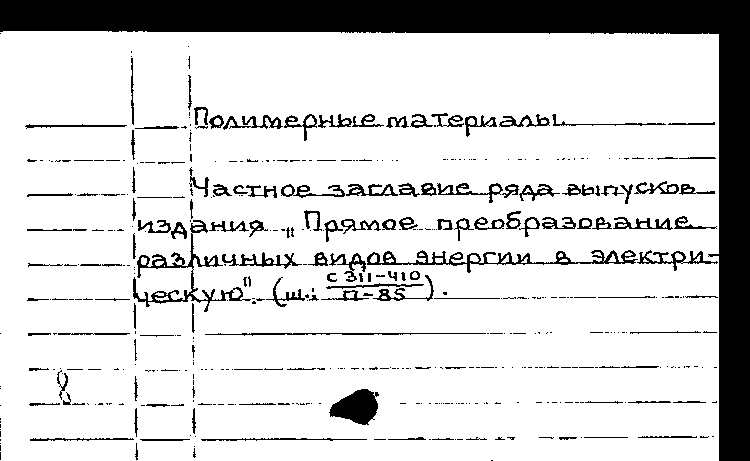 Полимерные материалы.
Частное заглавие ряда выпусков
издания „Прямое преобразование
различных видов энергии в электри-
ческую". (ш.: С 311-410 / П-85).
8